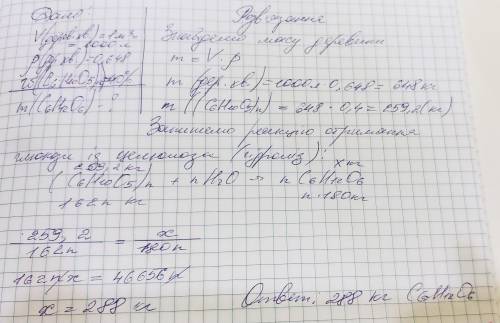 Дано:
V(дер.хв.)=1м³
=1000л
ρ(др.хв.)=0,648
(C₆H₁₀O₅)
m(C₆H₁₂O₆)-?
Розв'язання
Знаходимо масу деревини
m = V·ρ
m (дер. хв.)=1000л·0,648=648кг
m ((C₆H₁₀O₅)n) = 648·0,4=259,2(кг)
Запишемо реакцію отримання
глюкози із целюлози (гідроліз):
259,2кг x кг
(C₆H₁₀O₅)n + nH₂O → n C₆H₁₂O₆
162n кг n·180кг
259,2 / 162n = x / 180n
162n x = 46656n
x = 288 кг
Ответ: 288 кг C₆H₁₂O₆